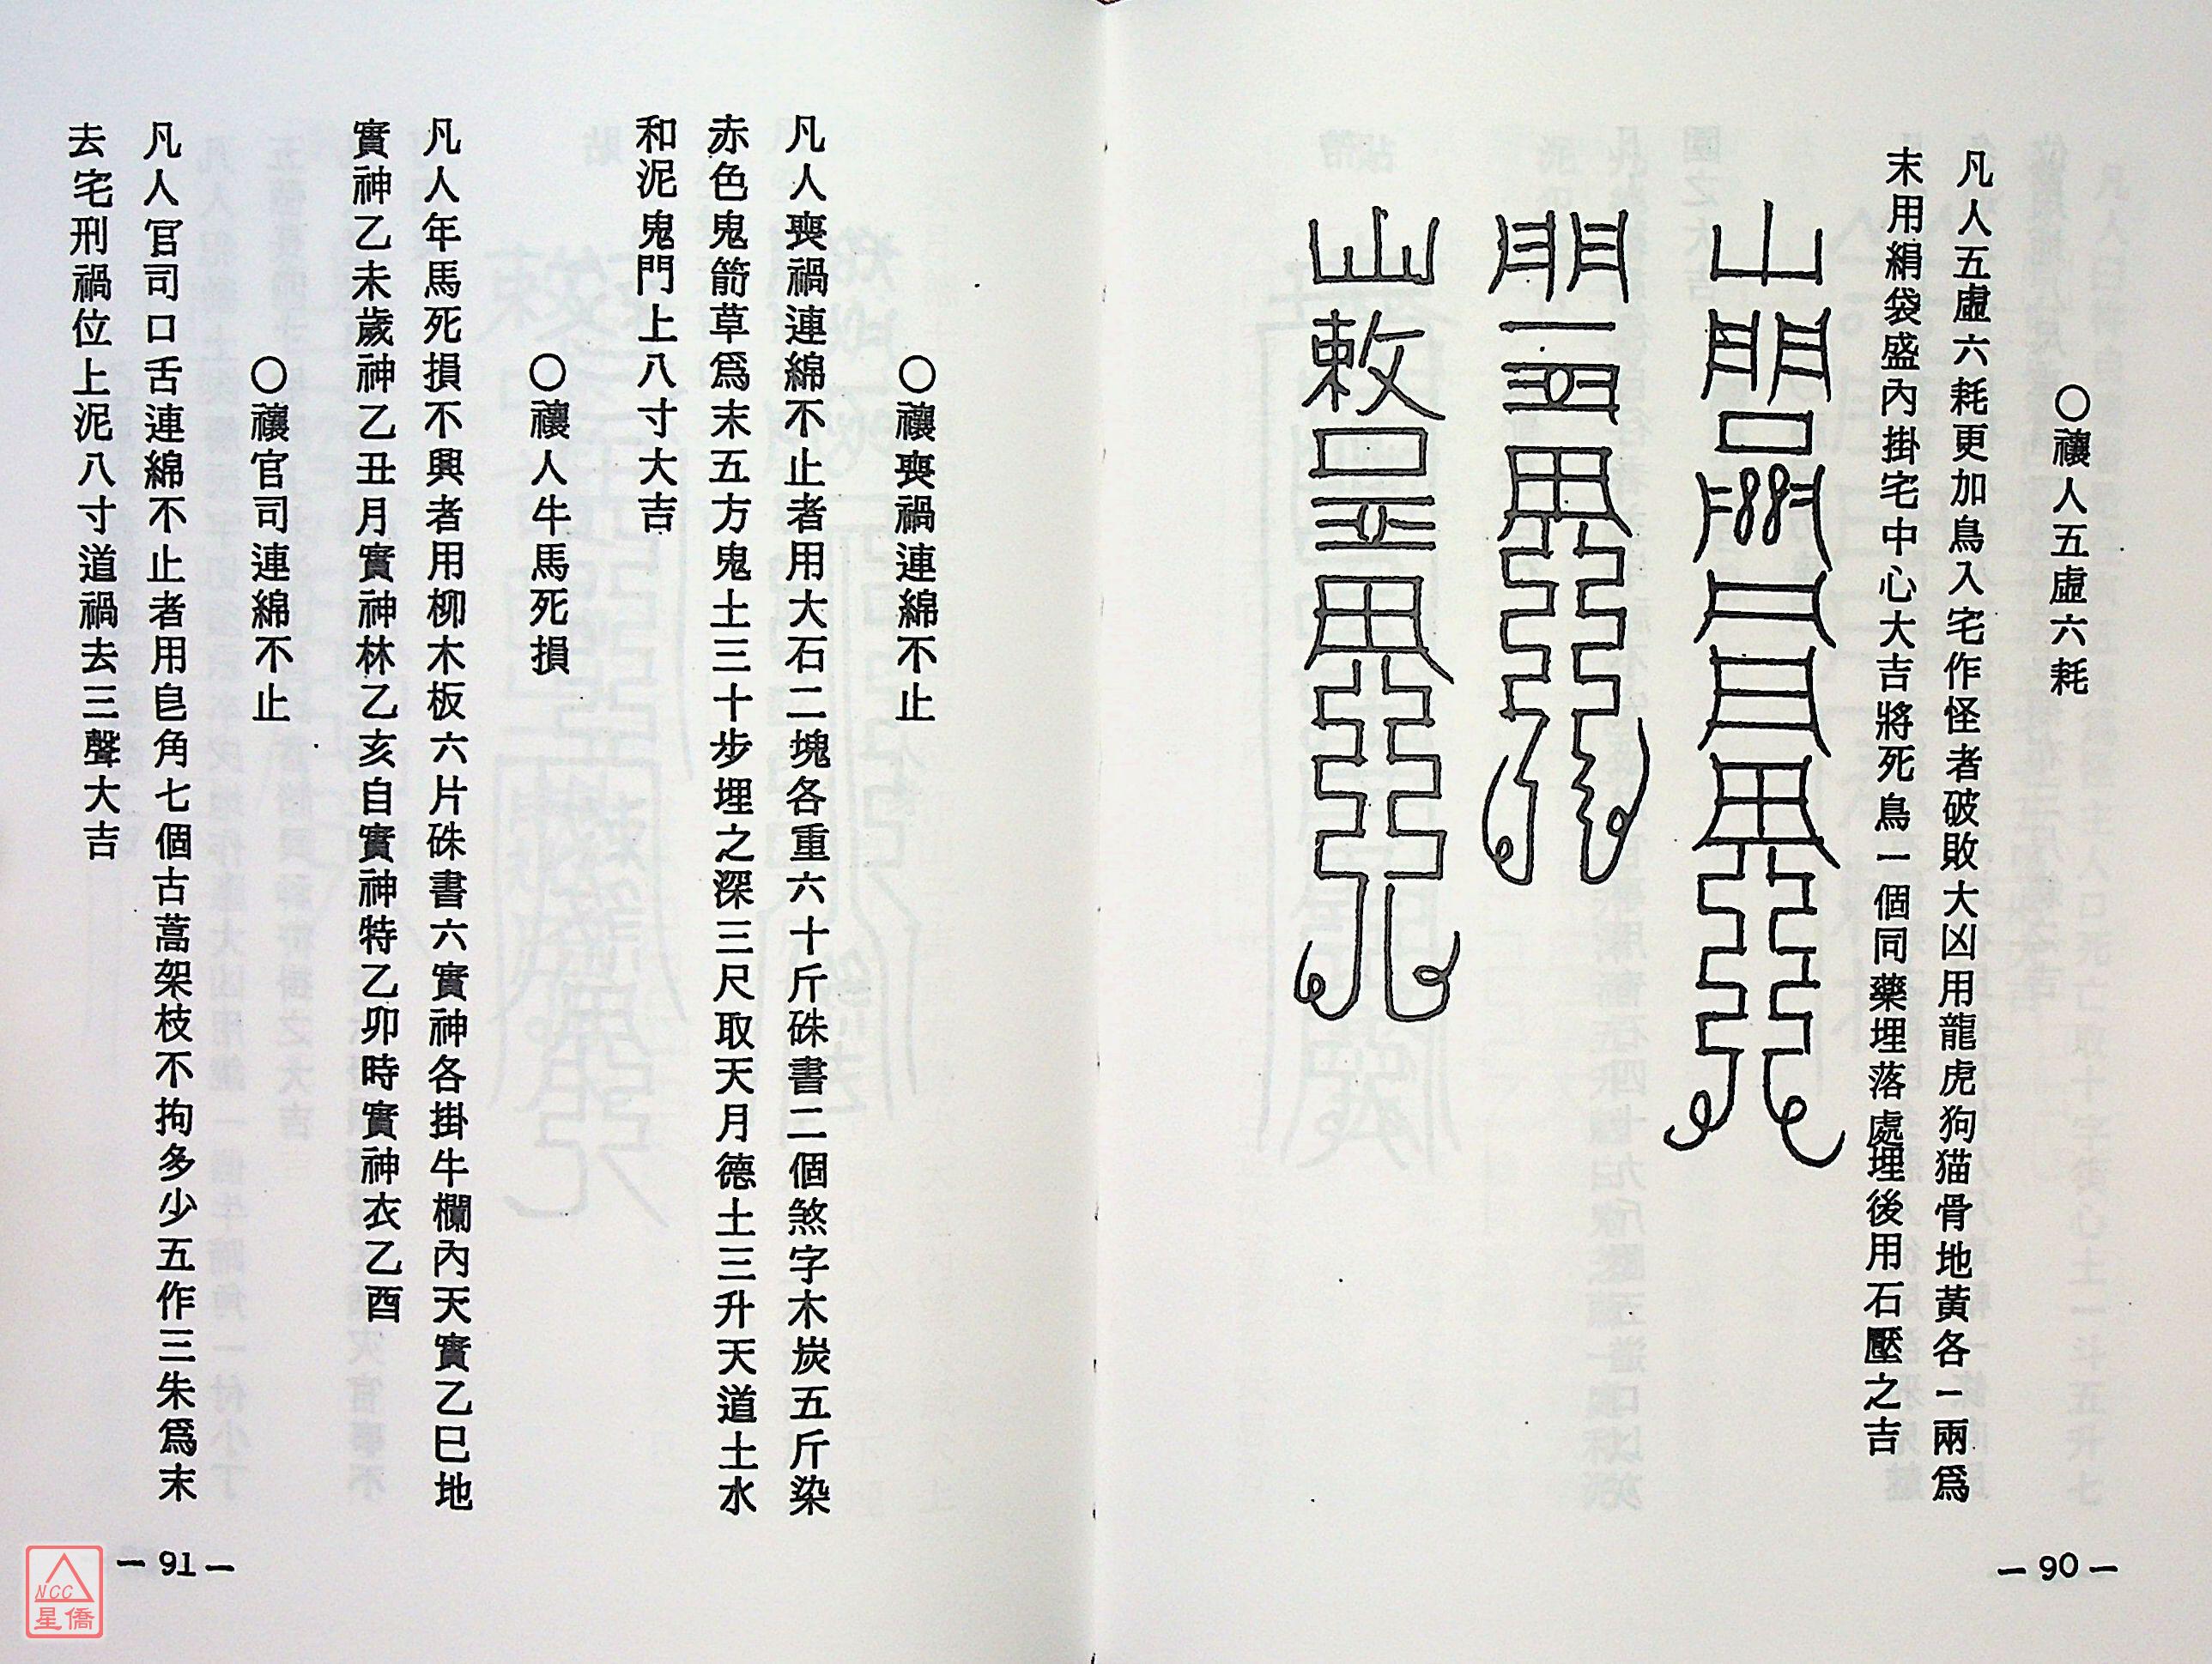 〇禳人五虛六耗
凡人五虛六耗更加鳥入宅作怪者破敗大凶用龍虎狗猫骨地黃各一兩爲
末用絹袋盛內掛宅中心大吉將死鳥一個同藥埋落處埋後用石壓之吉
—90—
〇禳喪禍連綿不止
凡人喪禍連綿不止者用大石二塊各重六十斤硃書二個煞字木炭五斤染
赤色鬼箭草爲末五方鬼土三十步埋之深三尺取天月德土三升天道土水
和泥鬼門上八寸大吉
〇禳人牛馬死損
凡人年馬死損不興者用柳木板六片硃書六實神各掛牛欄內天實乙巳地
實神乙未歲神乙丑月實神林乙亥自實神特乙卯時實神衣乙酉
〇禳官司連綿不止
凡人官司口舌連綿不止者用皀角七個古蒿架枝不拘多少五作三朱爲末
去宅刑禍位上泥八寸道禍去三聲大吉
—91—
NCC
星僑